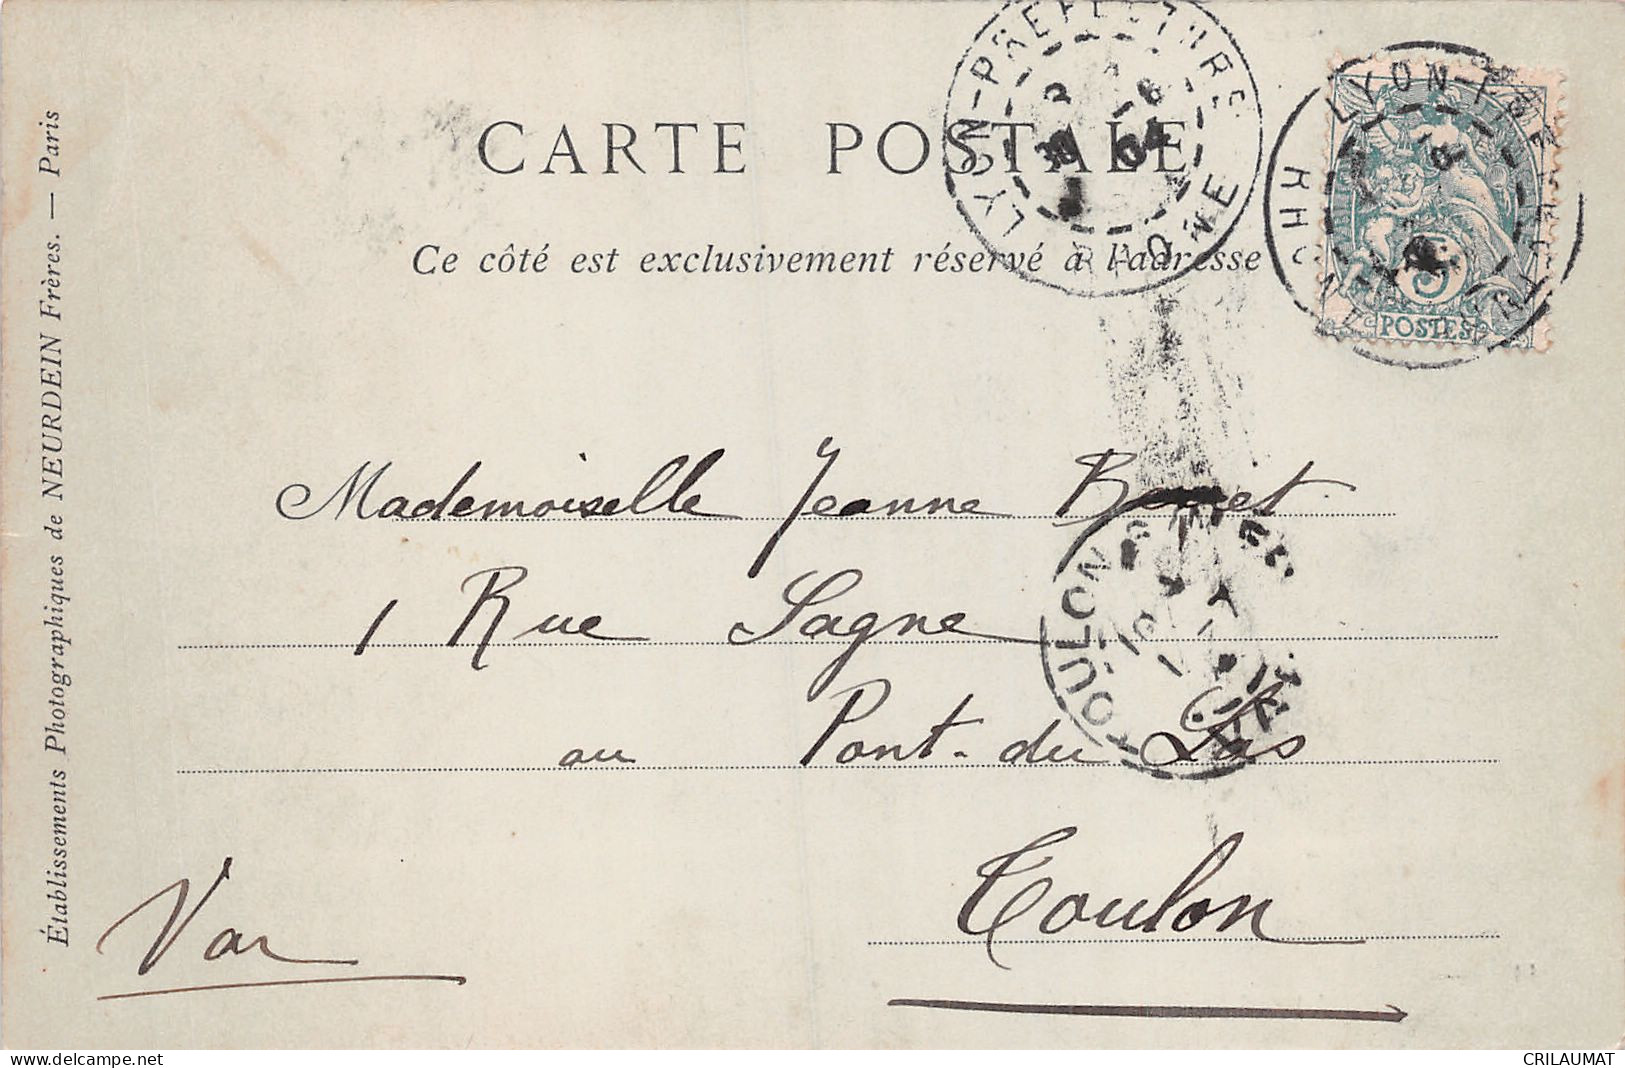 CARTE POSTALE
Ce côté est exclusivement réservé à l'adresse
LYON-PRÉFECTURE
RHONE
04
LYON-PRÉFECTURE
RHONE
5
POSTES
Mademoiselle Jeanne
1 Rue Sagne
au Pont-du Las
Toulon
Var
TOULON
VAR
Établissements Photographiques de NEURDEIN Frères. — Paris
delcampe.net
CRILAUMAT